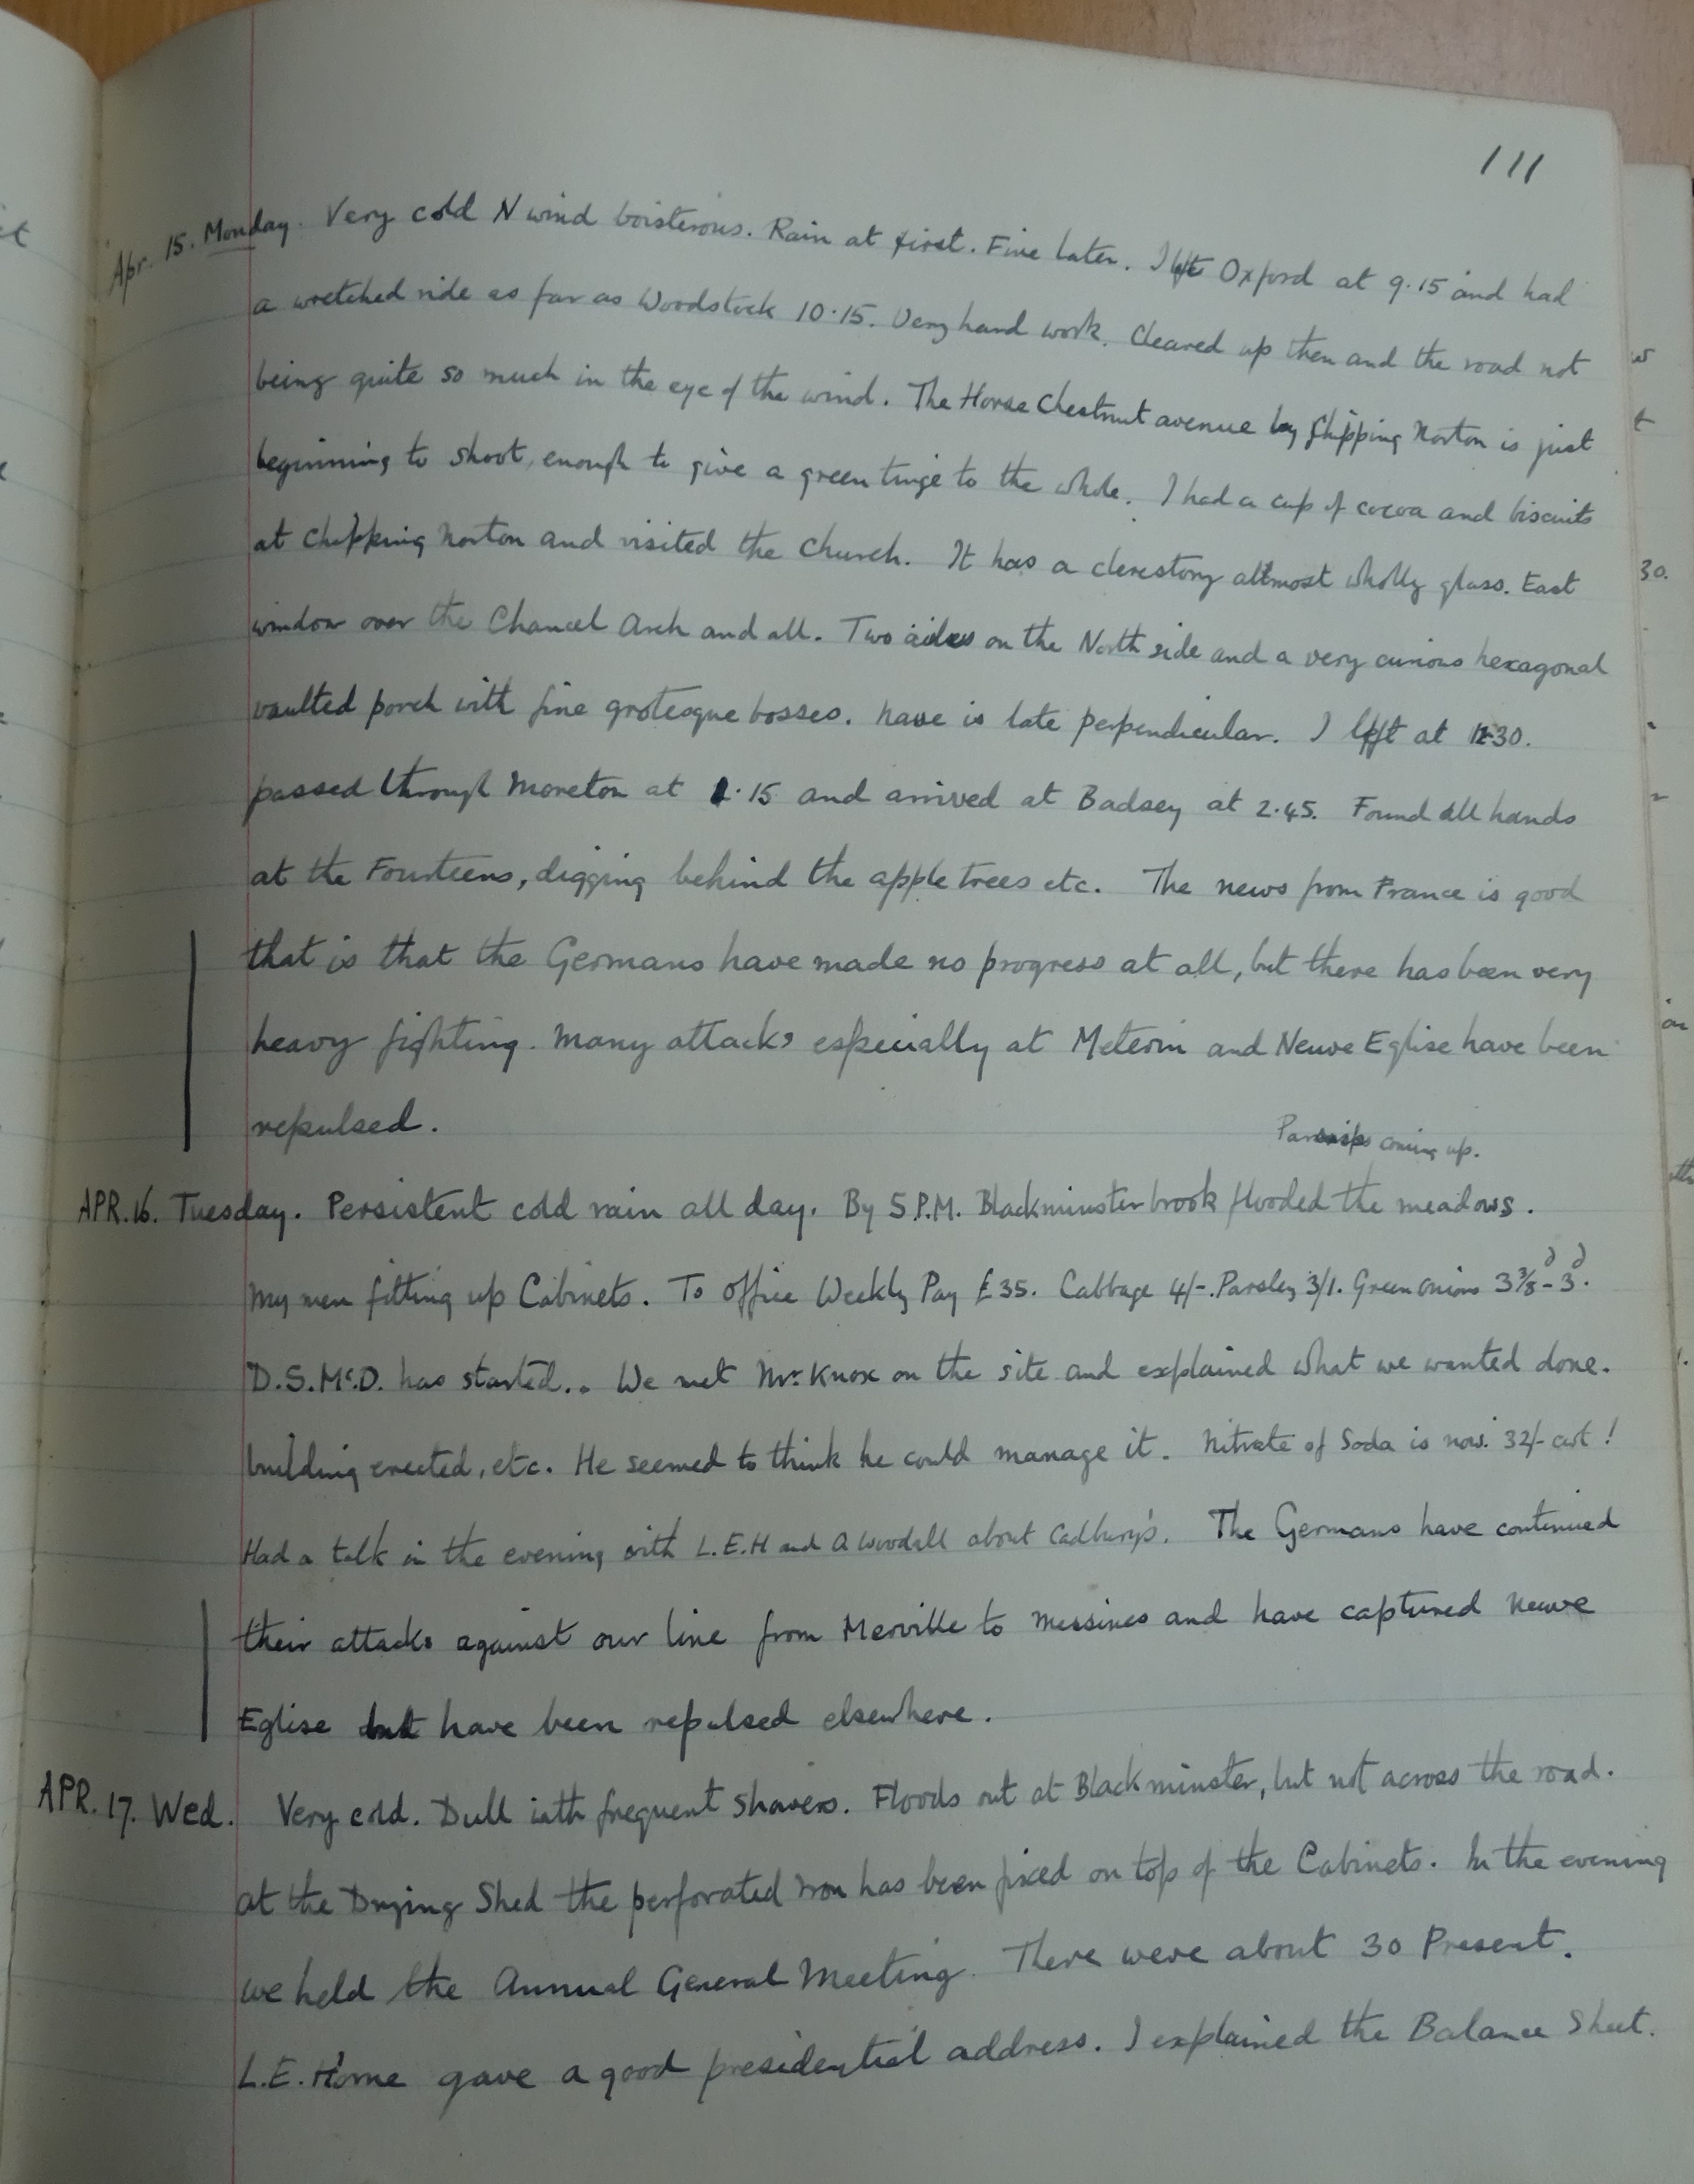 111
Apr. 15. Monday. Very cold N wind boisterous. Rain at first. Fine later. I left Oxford at 9.15 and had
a wretched ride as far as Woodstock 10.15. Very hard work. Cleared up then and the road not
being quite so much in the eye of the wind. The Horse Chestnut avenue by Chipping Norton is just
beginning to shoot, enough to give a green tinge to the whole. I had a cup of cocoa and biscuits
at Chipping Norton and visited the Church. It has a clerestory almost wholly glass. East
window over the Chancel Arch and all. Two aisles on the North side and a very curious hexagonal
vaulted porch with fine grotesque bosses. Nave is late perpendicular. I left at 12.30.
passed through Moreton at 1.15 and arrived at Badsey at 2.45. Found all hands
at the Fourteens, digging behind the apple trees etc. The news from France is good
that is that the Germans have made no progress at all, but there has been very
heavy fighting. Many attacks especially at Meterin and Neuve Eglise have been
repulsed.
Parsnips coming up.
APR. 16. Tuesday. Persistent cold rain all day. By 5 P.M. Blackminster brook flooded the meadows.
My men fitting up Cabinets. To Office Weekly Pay £35. Cabbage 4/-. Parsley 3/1. Green onions 3 3/8d - 3d.
D.S.McD. has started.. We met Mr. Knox on the site and explained what we wanted done.
building erected, etc. He seemed to think he could manage it. Nitrate of Soda is now 32/- cwt!
Had a talk in the evening with L.E.H and A Woodall about Cadbury's. The Germans have continued
their attacks against our line from Merville to Messines and have captured Neuve
Eglise but have been repulsed elsewhere.
APR. 17. Wed. Very cold. Dull with frequent showers. Floods out at Blackminster, but not across the road.
At the Drying Shed the perforated iron has been fixed on top of the Cabinets. In the evening
we held the Annual General Meeting. There were about 30 Present.
L.E. Horne gave a good presidential address. I explained the Balance Sheet.